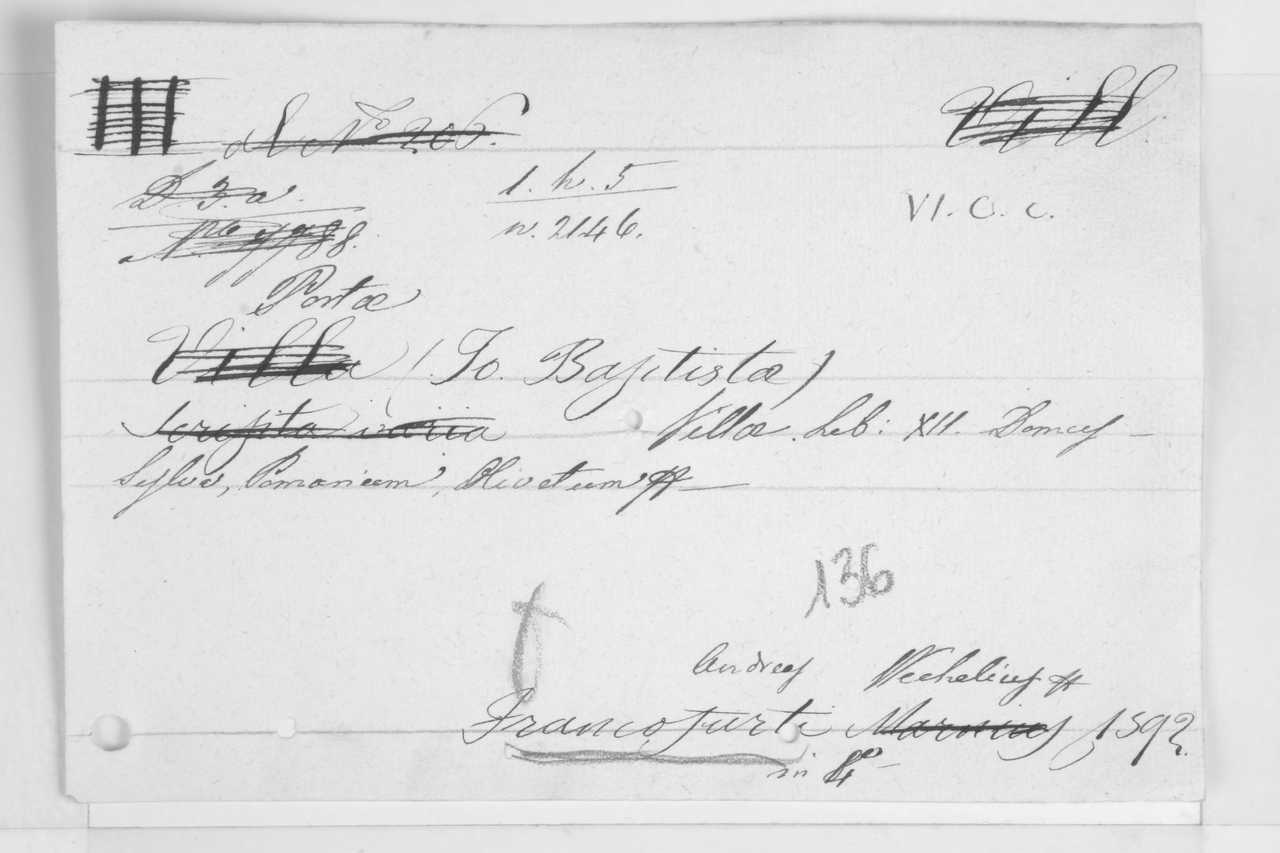 N° 206.
Vill.
D. 3. a.
1. h. 5
n. 2146.
VI. O. c.
Portæ
Villa (Jo. Baptistæ)
Scripta varia Villæ. Lib: XII. Domus –
Sylva, Pomarium, Olivetum
136
Andreas Wechelius
Francofurti Marnius 1592.
in 4°